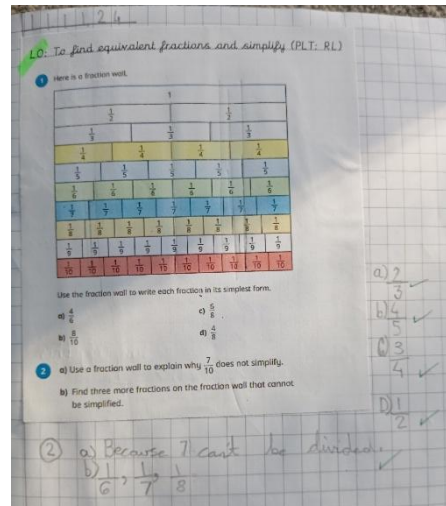 LO: To find equivalent fractions and simplify (PLT: RL)
1 Here is a fraction wall.
1
1/2 1/2
1/3 1/3 1/3
1/4 1/4 1/4 1/4
1/5 1/5 1/5 1/5 1/5
1/6 1/6 1/6 1/6 1/6 1/6
1/7 1/7 1/7 1/7 1/7 1/7 1/7
1/8 1/8 1/8 1/8 1/8 1/8 1/8 1/8
1/9 1/9 1/9 1/9 1/9 1/9 1/9 1/9 1/9
1/10 1/10 1/10 1/10 1/10 1/10 1/10 1/10 1/10 1/10
Use the fraction wall to write each fraction in its simplest form.
a) 4/6 c) 6/8
b) 8/10 d) 4/8
2 a) Use a fraction wall to explain why 7/10 does not simplify.
b) Find three more fractions on the fraction wall that cannot
be simplified.
a) 2/3
b) 4/5
C) 3/4
D) 1/2
2 a) Because 7 cant be divided.
b) 1/6, 1/7, 1/8